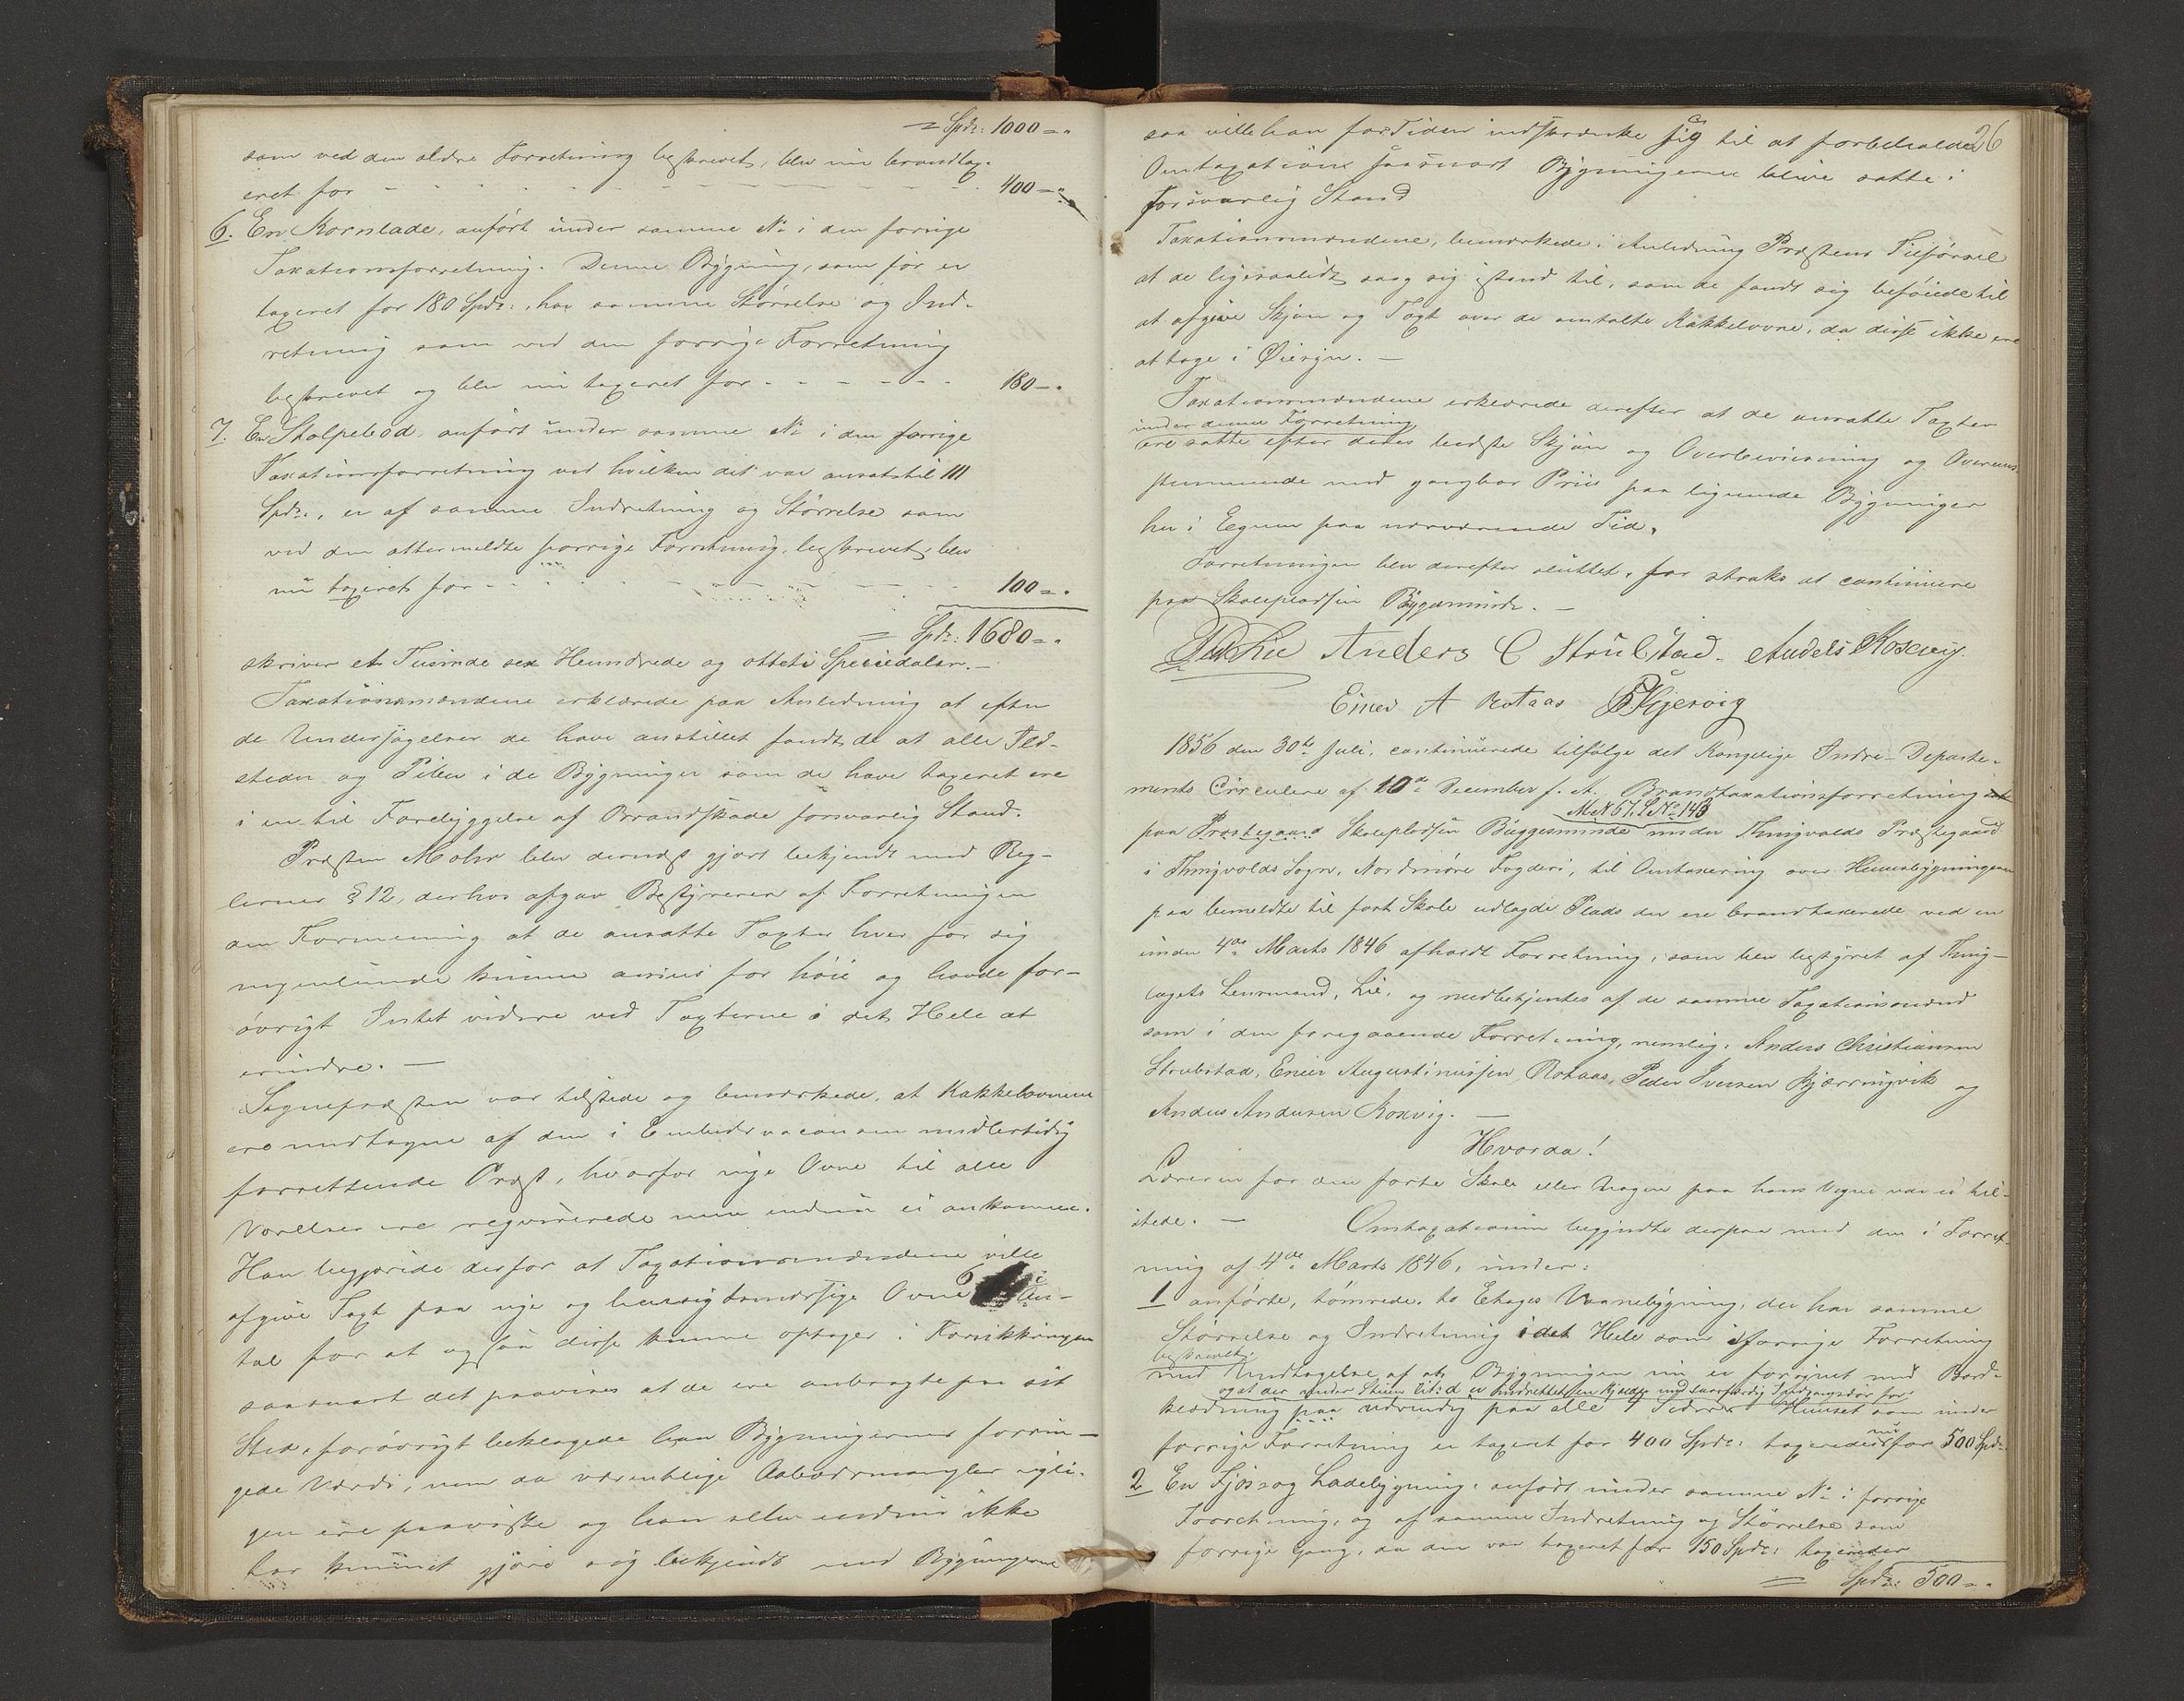 = Spdr: 1000 = "
som ved den ældre Forretning beskrevet, blev nu brandtax-
eret for - - - - - - - 400 = "
6. En Kornlade, anført under samme No i den forrige
Taxationsforretning. Denne Bygning, som før er
taxeret for 180 Spdr:, har samme Størrelse og Ind-
retning som ved den forrige Forretning
beskrevet og blev nu taxeret for - - - - - - 180 - "
7. En Stolpebod, anført under samme No i den forrige
Taxationsforretning ved hvilken det var ansat til 111
Spdr., er af samme Indretning og Størrelse som
ved den ommeldte forrige Forretning beskrevet, blev
nu taxeret for - - - - - - - 100 = "
= Spdr: 1680 = "
skriver et Tusinde sex Hundrede og otteti Speciedaler. -
Taxationsmændene erklærede paa Anledning at efter
de Undersøgelser de have anstillet fandt de at alle Ild-
steder og Piber i de Bygninger som de have taxeret ere
i en til Forebyggelse af Brandskade forsvarlig Stand.
Præsten Mohr blev dernæst gjort bekjendt med Reg-
lernes § 12, derhos afgav Bestyreren af Forretningen
den Formening at de ansatte Taxter hver for sig
ingenlunde kunne ansees for høie og havde for-
øvrigt Intet videre ved Taxterne i det Hele at
erindre. -
Sognepræsten var tilstede og bemærkede, at Kakkelovnene
ere medtagne af den i Embedsvacancen midlertidig
forrettende Præst, hvorfor nye Ovne til alle
Værelser ere requirerede men endnu ei ankomne.
Han begjærede derfor at Taxationsmændene ville
afgive Taxt paa nye og hensigtsmæssige Ovne 6 i An-
tal for at ogsaa disse kunne optages i Forsikkringen
saasnart det paavises at de ere anbragte paa sit
Sted, forøvrigt beklagede han Bygningernes forrin-
gede Værdi, men da væsentlige Aabodsmangler ogli-
gen ere paaviste og han ellers endnu ikke
har kunnet gjøre sig bekjendt med Bygningerne
26
saa ville han for Tiden indskrænke sig til at forbeholde
Omtaxation saasnart Bygningerne blive satte i
forsvarlig Stand
Taxationsmændene, bemærkede i Anledning Præstens Tilførsel
at de ligesaalidt saag sig istand til, som de fandt sig beføiede til
at afgive Skjøn og Taxt over de omtalte Kakkelovne, da disse ikke ere
at tage i Øiesyn. -
Taxationsmændene erklærede derefter at de ansatte Taxter
under denne Forretning
ere satte efter deres bedste Skjøn og Overbeviisning og Overeens-
stemmende med gangbar Priis paa lignende Bygninger
her i Egnen paa nærværende Tid.
Forretningen blev derefter sluttet, for straks at continuere
paa Skolepladsen Byggesminde. -
Lie Anders C Strulstad. Anders Koxvig.
Einer A Rotaas
1856 den 30te Juli, continuerede tilfølge det Kongelige Indre-Departe-
ments Circulære af 10de December f. A. Brandtaxationsforretning
M No 67, L No 143
paa Præstegaard Skolepladsen Byggesminde under Thingvolds Præstegaard
i Thingvolds Sogn, Nordmøre Fogderi, til Omtaxering over Huusbygningerne
paa bemeldte til fast Skole udlagde Plads der ere brandtaxerede ved en
under 4de Marts 1846 afholdt Forretning, som blev bestyret af Thing-
lagets Lensmand, Lie, og medbetjentes af de samme Taxationsmænd
som i den foregaaende Forretning, nemlig, Anders Christiansen
Strulstad, Einer Augustinussen Rotaas, Peder Iversen Kjærringvik og
Anders Andersen Koxvig. -
Hvorda!
Læreren for den faste Skole eller Nogen paa hans Vegne var ei til-
stede. - Omtaxationen begyndte derpaa med den i Forret-
ning af 4de Marts 1846, under:
1 anførte, tømrede, to Etages Vaanebygning, der har samme
Størrelse og Indretning i det Hele som i forrige Forretning
beskrevet.
med Undtagelse af at Bygningen nu er forsynet med Bord-
og at der under Stuen lit: d er indrettet en Kjelder med Indgangsdør for.
klædning paa udvendig paa alle 4 Sider. Huuset som under
forrige Forretning er taxeret for 400 Spdr: taxeredes nu for 500 Spdr:
2 En Fjøs og Ladebygning, anført under samme No i forrige
Forretning, og af samme Indretning og Størrelse som
forrige Gang, da den var taxeret for 150 Spdr: taxeredes
= Spdr: 500 = "